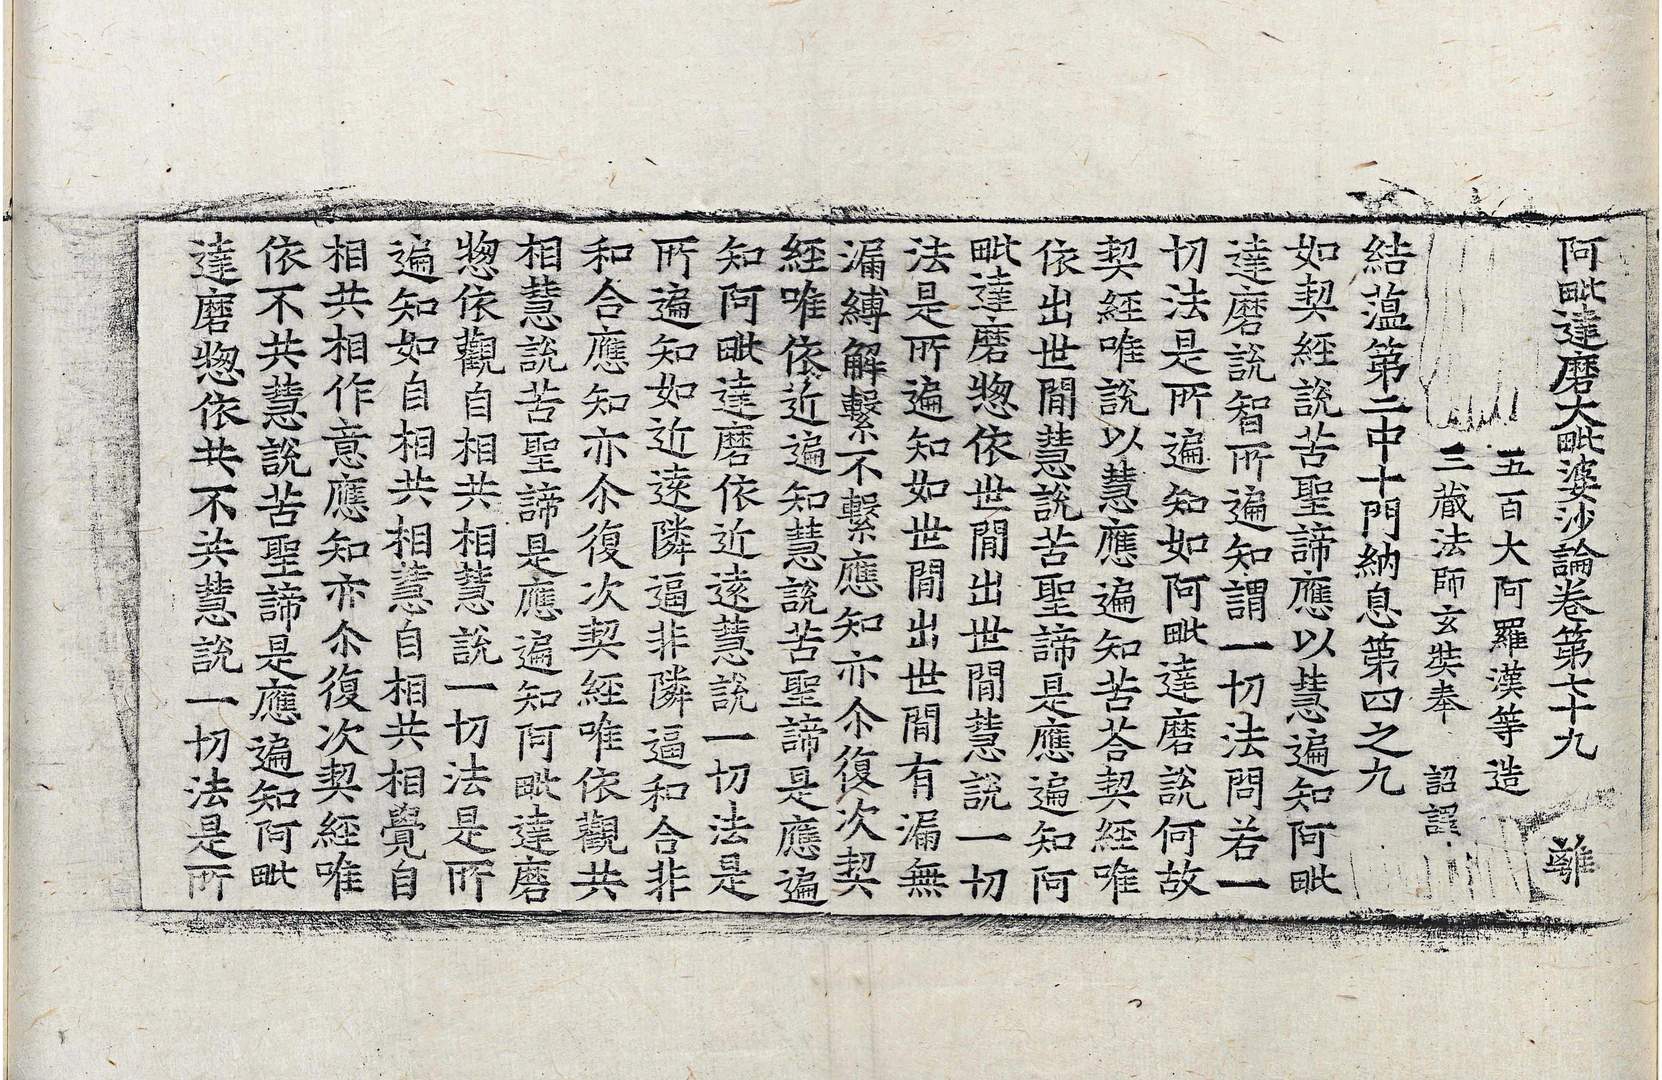 阿毗達磨大毗婆沙論卷第七十九 離
五百大阿羅漢等造
三藏法師玄奘奉 詔譯
結薀第二中十門納息第四之九
如契經說苦聖諦應以慧遍知阿毗
達磨說智所遍知謂一切法問若一
切法是所遍知如阿毗達磨說何故
契經唯說以慧應遍知苦荅契經唯
依出世閒慧說苦聖諦是應遍知阿
毗達磨惣依世閒出世閒慧說一切
法是所遍知如世閒出世閒有漏無
漏縛解繫不繫應知亦尒復次契
經唯依近遍知慧說苦聖諦是應遍
知阿毗達磨依近遠慧說一切法是
所遍知如近遠隣逼非隣逼和合非
和合應知亦尒復次契經唯依觀共
相慧說苦聖諦是應遍知阿毗達磨
惣依觀自相共相慧說一切法是所
遍知如自相共相慧自相共相覺自
相共相作意應知亦尒復次契經唯
依不共慧說苦聖諦是應遍知阿毗
達磨惣依共不共慧說一切法是所